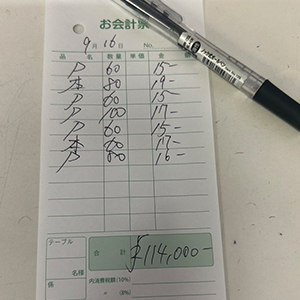 お会計票
9月16日 No.
品名 数量 単価 金額
P 60 15-
本 80 19-
P 60 15-
P 100 17-
P 60 15-
本 60 17-
P 80 16-
テーブル 名様
係
合計 ¥114,000-
内消費税額(10%)
〃 (8%)